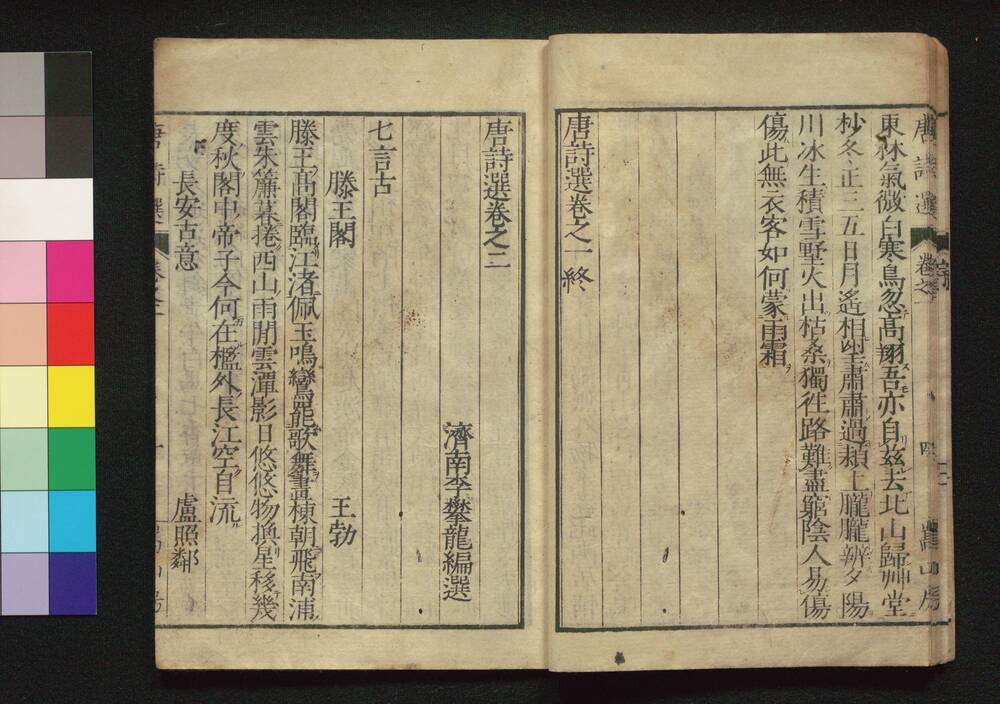 東林氣微白寒鳥忽高翔吾亦自兹去北山歸艸堂
杪冬正三五日月遙相望肅肅過潁上朧朧辨夕陽
川冰生積雪墅火出枯桑獨徃路難盡窮陰人易傷
傷此無衣客如何蒙雨霜
唐詩選卷之一終
唐詩選卷之二
濟南李攀龍編選
七言古
滕王閣 王勃
滕王高閣臨江渚佩玉鳴鸞罷歌舞畫棟朝飛南浦
雲朱簾暮捲西山雨閒雲潭影日悠悠物換星移幾
度秋閣中帝子今何在檻外長江空自流
長安古意 盧照鄰